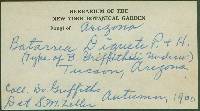 HERBARIUM OF THE
NEW YORK BOTANICAL GARDEN
Fungi of Arizona
Batarrea Digueti P. & H.
(Type of B. Griffithsii Underw.)
Tucson, Arizona
Coll. D. Griffiths Autumn, 1900
Det S.M. Zeller